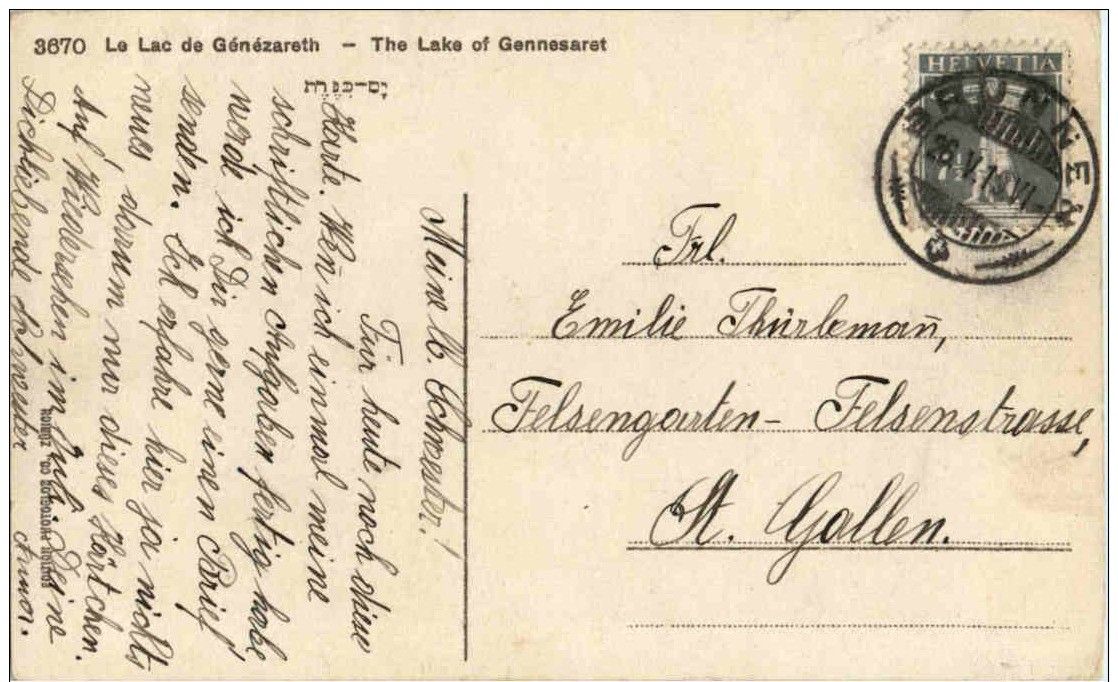 3670 Le Lac de Génézareth – The Lake of Gennesaret
יָם־כִּנֶּרֶת
HELVETIA
7½
BRUNNEN
26.V.19.VI
Meine lb. Schwester!
Für heute noch diese
Karte. Wen̄ ich einmal meine
schriftlichen Aufgaben fertig habe
werde ich Dir gerne einen Brief
senden. Ich erfahre hier ja nichts
neues darum nur dieses Kärtchen.
Auf Wiedersehen im Juli. Deine
Dichliebende Schwester Anna.
Frl.
Emilie Thürleman̄,
Felsengarten- Felsenstrasse,
St. Gallen.